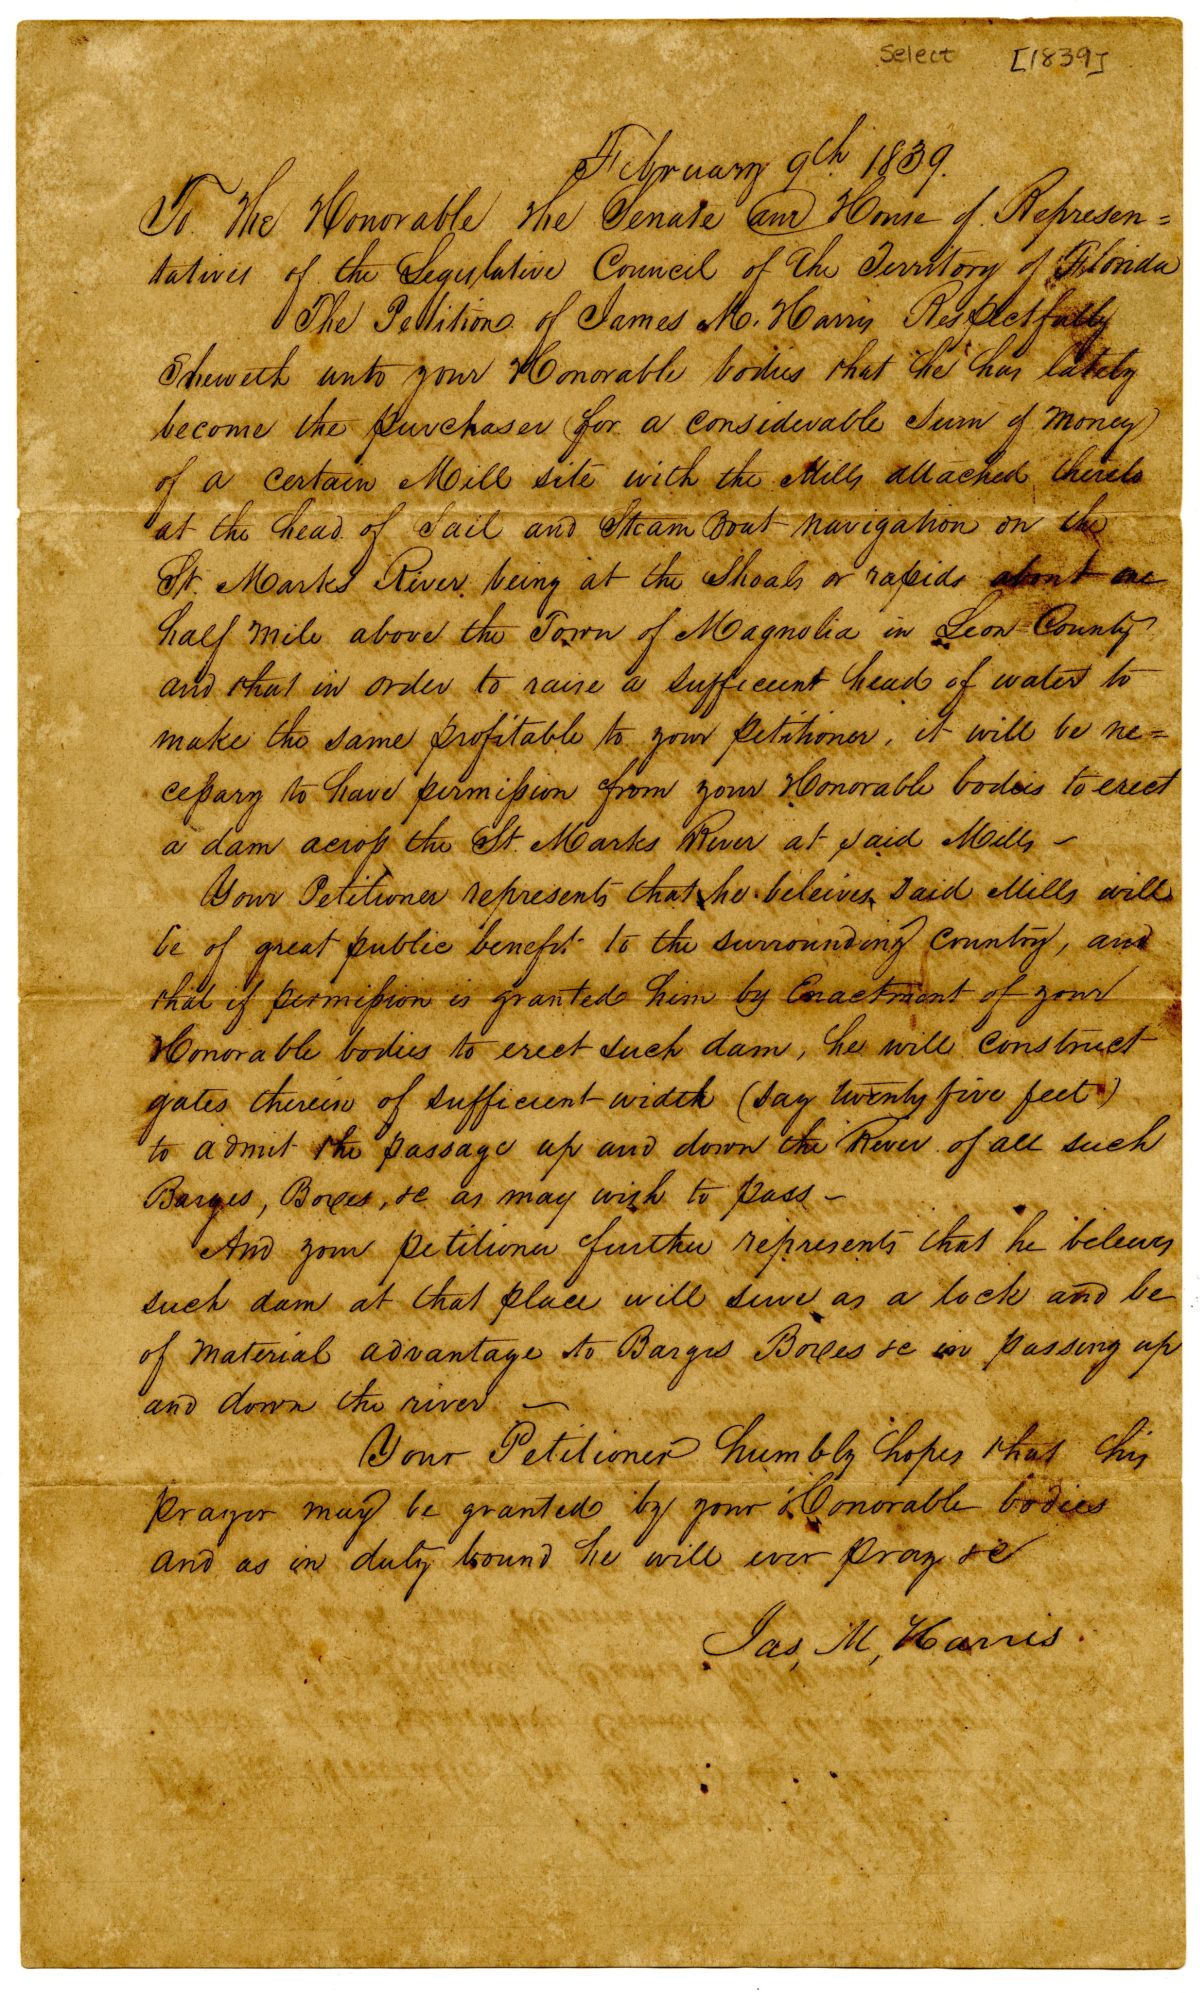 Select [1839]
February 9th 1839.
To The Honorable the Senate and House of Represen=
tatives of the Legislative Council of the Territory of Florida
The Petition of James M. Harris Respectfully
Sheweth unto your Honorable bodies that he has lately
become the purchaser (for a considerable sum of money)
of a certain Mill site with the Mills attached thereto
at the head of Sail and Steam Boat navigation on the
St. Marks River being at the Shoals or rapids about one
half mile above the Town of Magnolia in Leon County
and that in order to raise a sufficient head of water to
make the same profitable to your petitioner, it will be ne=
cessary to have permission from your Honorable bodies to erect
a dam across the St. Marks River at said Mills –
Your Petitioner represents that he beleives said Mills will
be of great public benefit to the surrounding Country, and
that if permission is granted him by Enactment of your
Honorable bodies to erect such dam, he will construct
gates therein of sufficient width (say twenty five feet)
to admit the passage up and down the River of all such
Barges, Boxes, &c as may wish to pass –
And your petitioner further represents that he beleives
such dam at that place will serve as a lock and be
of material advantage to Barges Boxes &c in passing up
and down the river –
Your Petitioner humbly hopes that his
prayer may be granted by your Honorable bodies
and as in duty bound he will ever pray &c
Jas, M, Harris